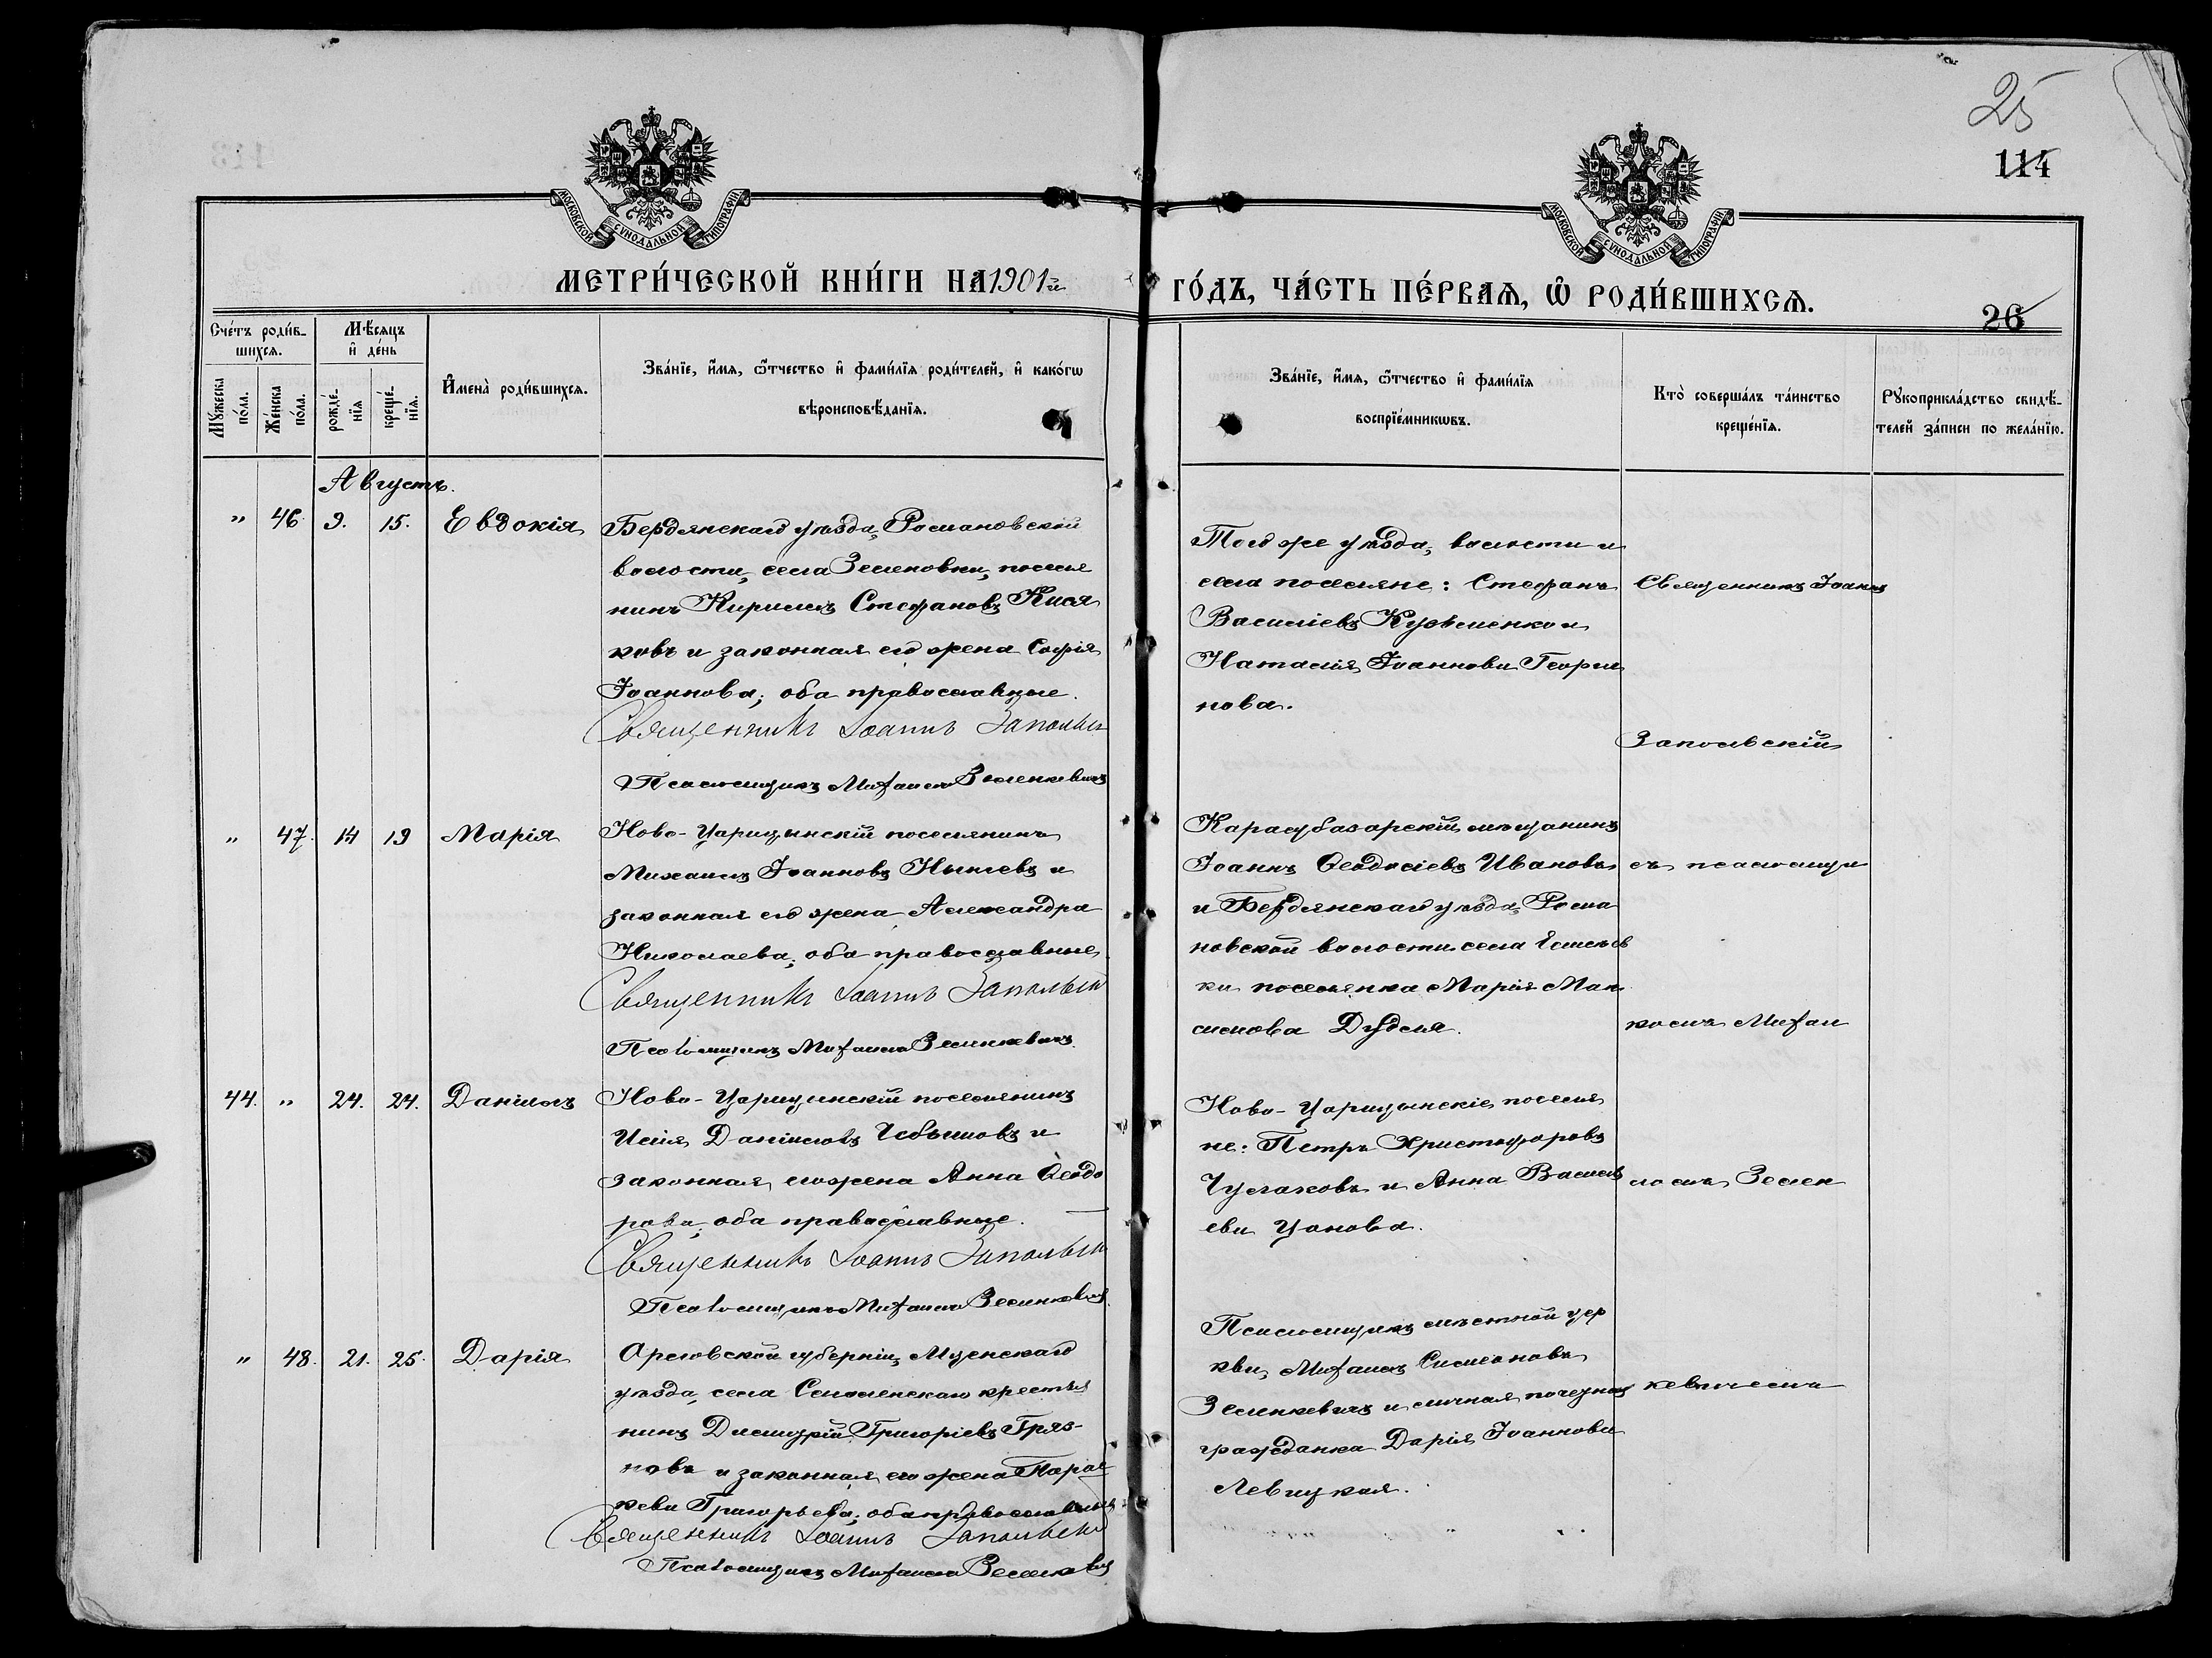 25
114
МОСКОВСКОЙ СѴНОДАЛЬНОЙ ТИПОГРАФІИ
МОСКОВСКОЙ СѴНОДАЛЬНОЙ ТИПОГРАФІИ
МЕТРИ́ЧЕСКОЙ КНИ́ГИ НА 1901й
ГО́ДЪ, ЧА́СТЬ ПЕ́РВАѦ, Ѡ҆ РОДИ́ВШИХСѦ.
26
Сче́тъ роди́в-
шихсѧ.
Мꙋжеска по́ла.
Же́нска по́ла.
Мѣ́сяцъ
и҆ де́нь
рожде́-
нїѧ
креще́-
нїѧ.
И҆мена̀ роди́вшихсѧ.
Зва́нїе, и҆́мѧ, ѻ҆́тчество и҆ фами́лїѧ роди́телей, и҆ како́гѡ
вѣроисповѣ́данїѧ.
Зва́нїе, и҆́мѧ, ѻ҆́тчество и҆ фами́лїѧ
воспрїе́мникѡвъ.
Кто̀ соверша́лъ та́инство
креще́нїѧ.
Рꙋкоприкла́дство свидѣ́-
телей за́писи по жела́нїю.
Августъ.
" 46. 9. 15. Евдокія
Бердянскаго уѣзда, Романовской
волости, села Зеленовки, поселя
нинъ Кириллъ Стефановъ Кися
ковъ и законная его жена Софія
Іоаннова; оба православные.
Священникъ Іоаннъ Запольскій
Псаломщикъ Михаилъ Зеленкевичъ
Того же уѣзда, волости и
села поселяне: Стефанъ
Василіевъ Кузьменко и
Наталія Іоаннова Георги
нова.
Священникъ Іоаннъ
Запольскій
" 47. 14 19 Марія
Ново-Царицынскій поселянинъ
Михаилъ Іоанновъ и
законная его жена Александра
Николаева; оба православные
Священникъ Іоаннъ Запольскій
Псаломщикъ Михаилъ Зеленкевичъ.
Карасубазарскій мѣщанинъ
Іоаннъ Ѳеодосіевъ Ивановъ
и Бердянскаго уѣзда, Рома
новской волости села
ки поселянка Марія Мак
симова Дудля.
съ псаломщи
комъ Михаи
44. " 24. 24. Даніилъ
Ново-Царицынскій поселянинъ
Илія Даніиловъ и
законная его жена Анна Ѳеодо
рова, оба православные.
Священникъ Іоаннъ Запольскій
Псаломщикъ Михаилъ Зеленкевичъ
Ново-Царицынскіе поселя
не: Петръ Христофоровъ
Чулаковъ и Анна Василь
ева Цонова.
ломъ Зелен
" 48. 21. 25. Дарія
Орловской губерніи, Мценскаго
уѣзда, села Смоленскаго крестья
нинъ Димитрій Григоріевъ Гряз-
новъ и законная его жена Парас
кева Григорьева; оба православные
Священникъ Іоаннъ Запольскій
Псаломщикъ Михаилъ Зеленкевичъ
Псаломщикъ мѣстной цер
кви, Михаилъ Симеоновъ
Зеленкевичъ и личная почетная
гражданка Дарія Іоаннова
Левицкая.
кевичемъ